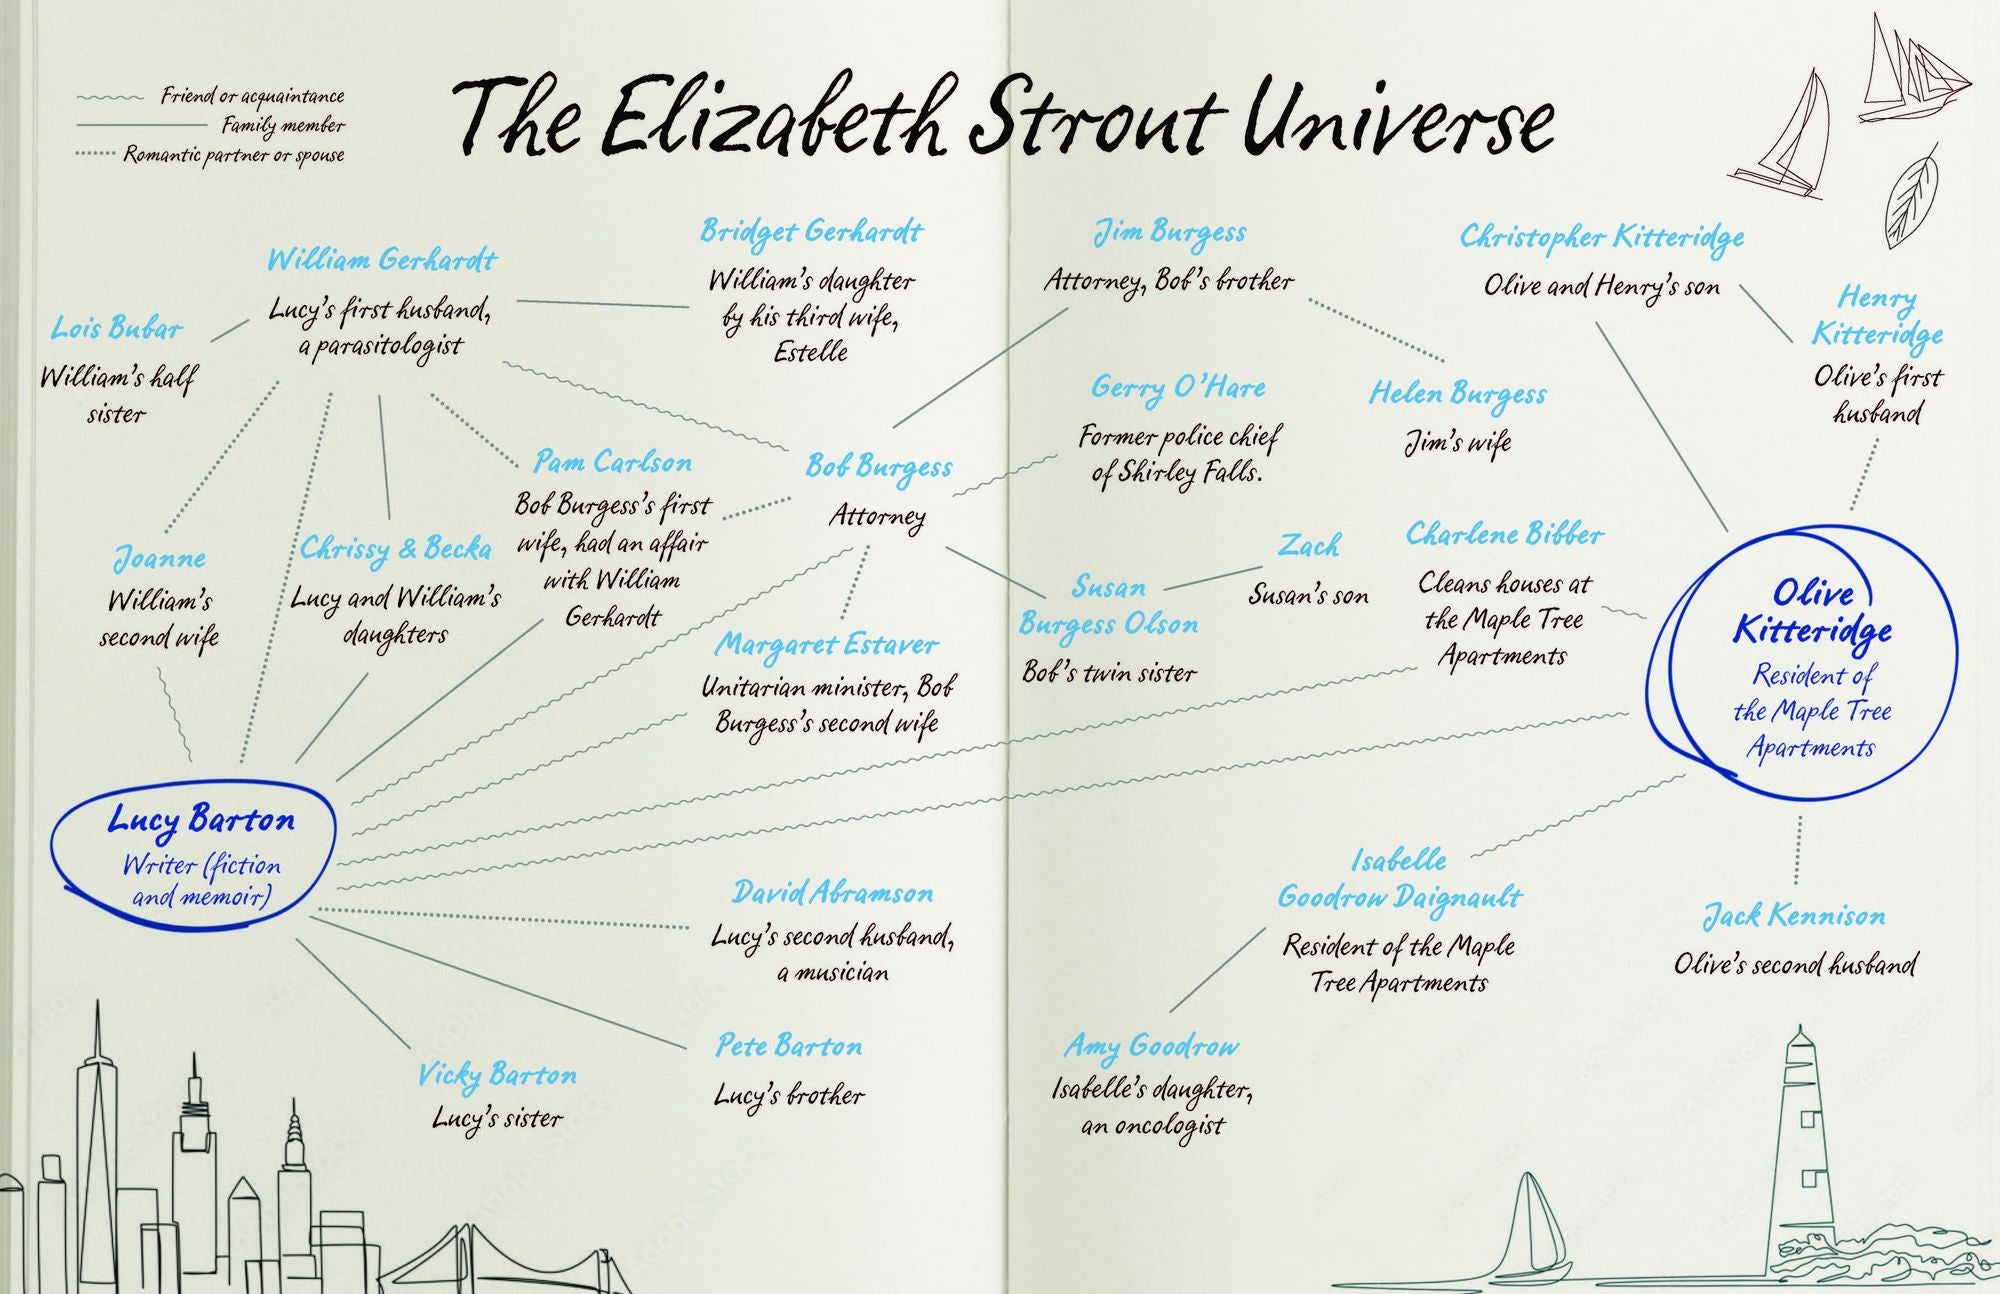 The Elizabeth Strout Universe
Friend or acquaintance
Family member
Romantic partner or spouse
William Gerhardt
Lucy's first husband,
a parasitologist
Bridget Gerhardt
William's daughter
by his third wife,
Estelle
Jim Burgess
Attorney, Bob's brother
Christopher Kitteridge
Olive and Henry's son
Henry
Kitteridge
Olive's first
husband
Lois Bubar
William's half
sister
Gerry O'Hare
Former police chief
of Shirley Falls.
Helen Burgess
Jim's wife
Pam Carlson
Bob Burgess's first
wife, had an affair
with William
Gerhardt
Bob Burgess
Attorney
Joanne
William's
second wife
Chrissy & Becka
Lucy and William's
daughters
Susan
Burgess Olson
Bob's twin sister
Zach
Susan's son
Charlene Bibber
Cleans houses at
the Maple Tree
Apartments
Olive
Kitteridge
Resident of
the Maple Tree
Apartments
Margaret Estaver
Unitarian minister, Bob
Burgess's second wife
Lucy Barton
Writer (fiction
and memoir)
David Abramson
Lucy's second husband,
a musician
Isabelle
Goodrow Daignault
Resident of the Maple
Tree Apartments
Jack Kennison
Olive's second husband
Vicky Barton
Lucy's sister
Pete Barton
Lucy's brother
Amy Goodrow
Isabelle's daughter,
an oncologist